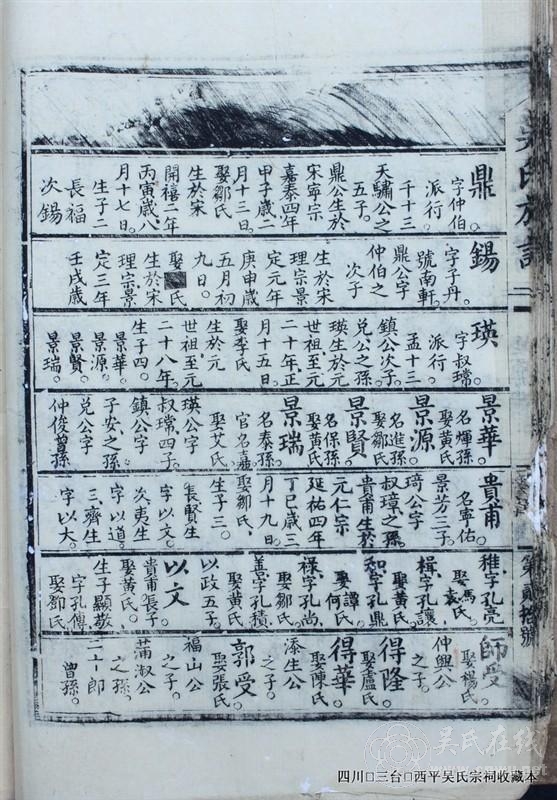 吳氏族譜
第貳拾號
鼎
字仲伯。
派行。
千十三
天驌公之
五子。
鼎公生於
宋寧宗
嘉泰四年
甲子歲二
月十三日。
娶鄒氏
生於宋
開禧二年
丙寅歲八
月十七日。
生子二
長福
次錫
錫
字子丹。
號南軒。
鼎公字
仲伯之
次子
生於宋
理宗景
定元年
庚申歲
五月初
九日。
娶
氏
生於宋
理宗景
定三年
壬戌歲
瑛
字叔璫。
派行。
孟十三
鎮公次子。
兌公之孫
瑛生於元
世祖至元
二十年正
月十五日。
娶李氏
生於元
世祖至元
二十八年。
生子四。
景華。
景源。
景賢。
景瑞。
景華。
名煇孫。
娶黃氏。
景源。
名進孫
娶鄒氏
景賢
名保孫
娶黃氏。
景瑞
名泰孫
官名
娶艾氏。
瑛公字
叔璫四子。
鎮公字
子安之孫
兌公字
仲俊曾孫
貴甫
名寧佑
景芳三子。
琦公字
叔璋之孫
貴甫生於
元仁宗
延祐四年
丁巳歲三
月十九日。
娶鄒氏。
生子三。
長賢生
字以文。
次夷生
字以道。
三齊生
字以大。
稚。字孔亮
娶馬氏。
楫。字孔讓
娶黃氏。
和。字孔鼎
娶譚氏。
娶何氏
祿。字孔尚
娶鄒氏。
善。字孔積
娶黃氏。
以政五子。
以文
貴甫長子
娶黃氏。
生子顯敬
字孔傅
娶鄧氏
師受。
娶楊氏。
仲興公
之子。
得隆
娶盧氏
得華
娶陳氏
添生公
之子。
郭受
娶張氏。
福山公
之子。
蒲淑公
之孫。
二十郎
曾孫。
吴氏在线
四川□三台□西平吴氏宗祠收藏本